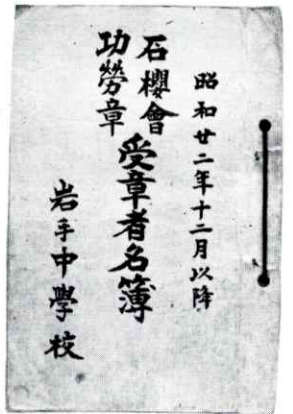 昭和廿二年十二月以降
石櫻會
功勞章
受章者名簿
岩手中學校